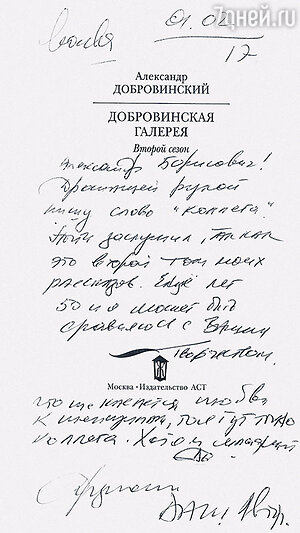 7дней.ru
Москва 01.02
17
Александр
ДОБРОВИНСКИЙ
ДОБРОВИНСКАЯ
ГАЛЕРЕЯ
Второй сезон
Александр Борисович!
Дрожащей рукой
пишу слово "коллега".
заслужил, так как
это второй том моих
рассказов. Ещё лет
50 и я может быть
сравняюсь с Вашим
Творчеством.
Москва • Издательство АСТ
что касается любви
к , то тут точно
коллега. Хотя и младший
Обнимаю
Ваш Автор.